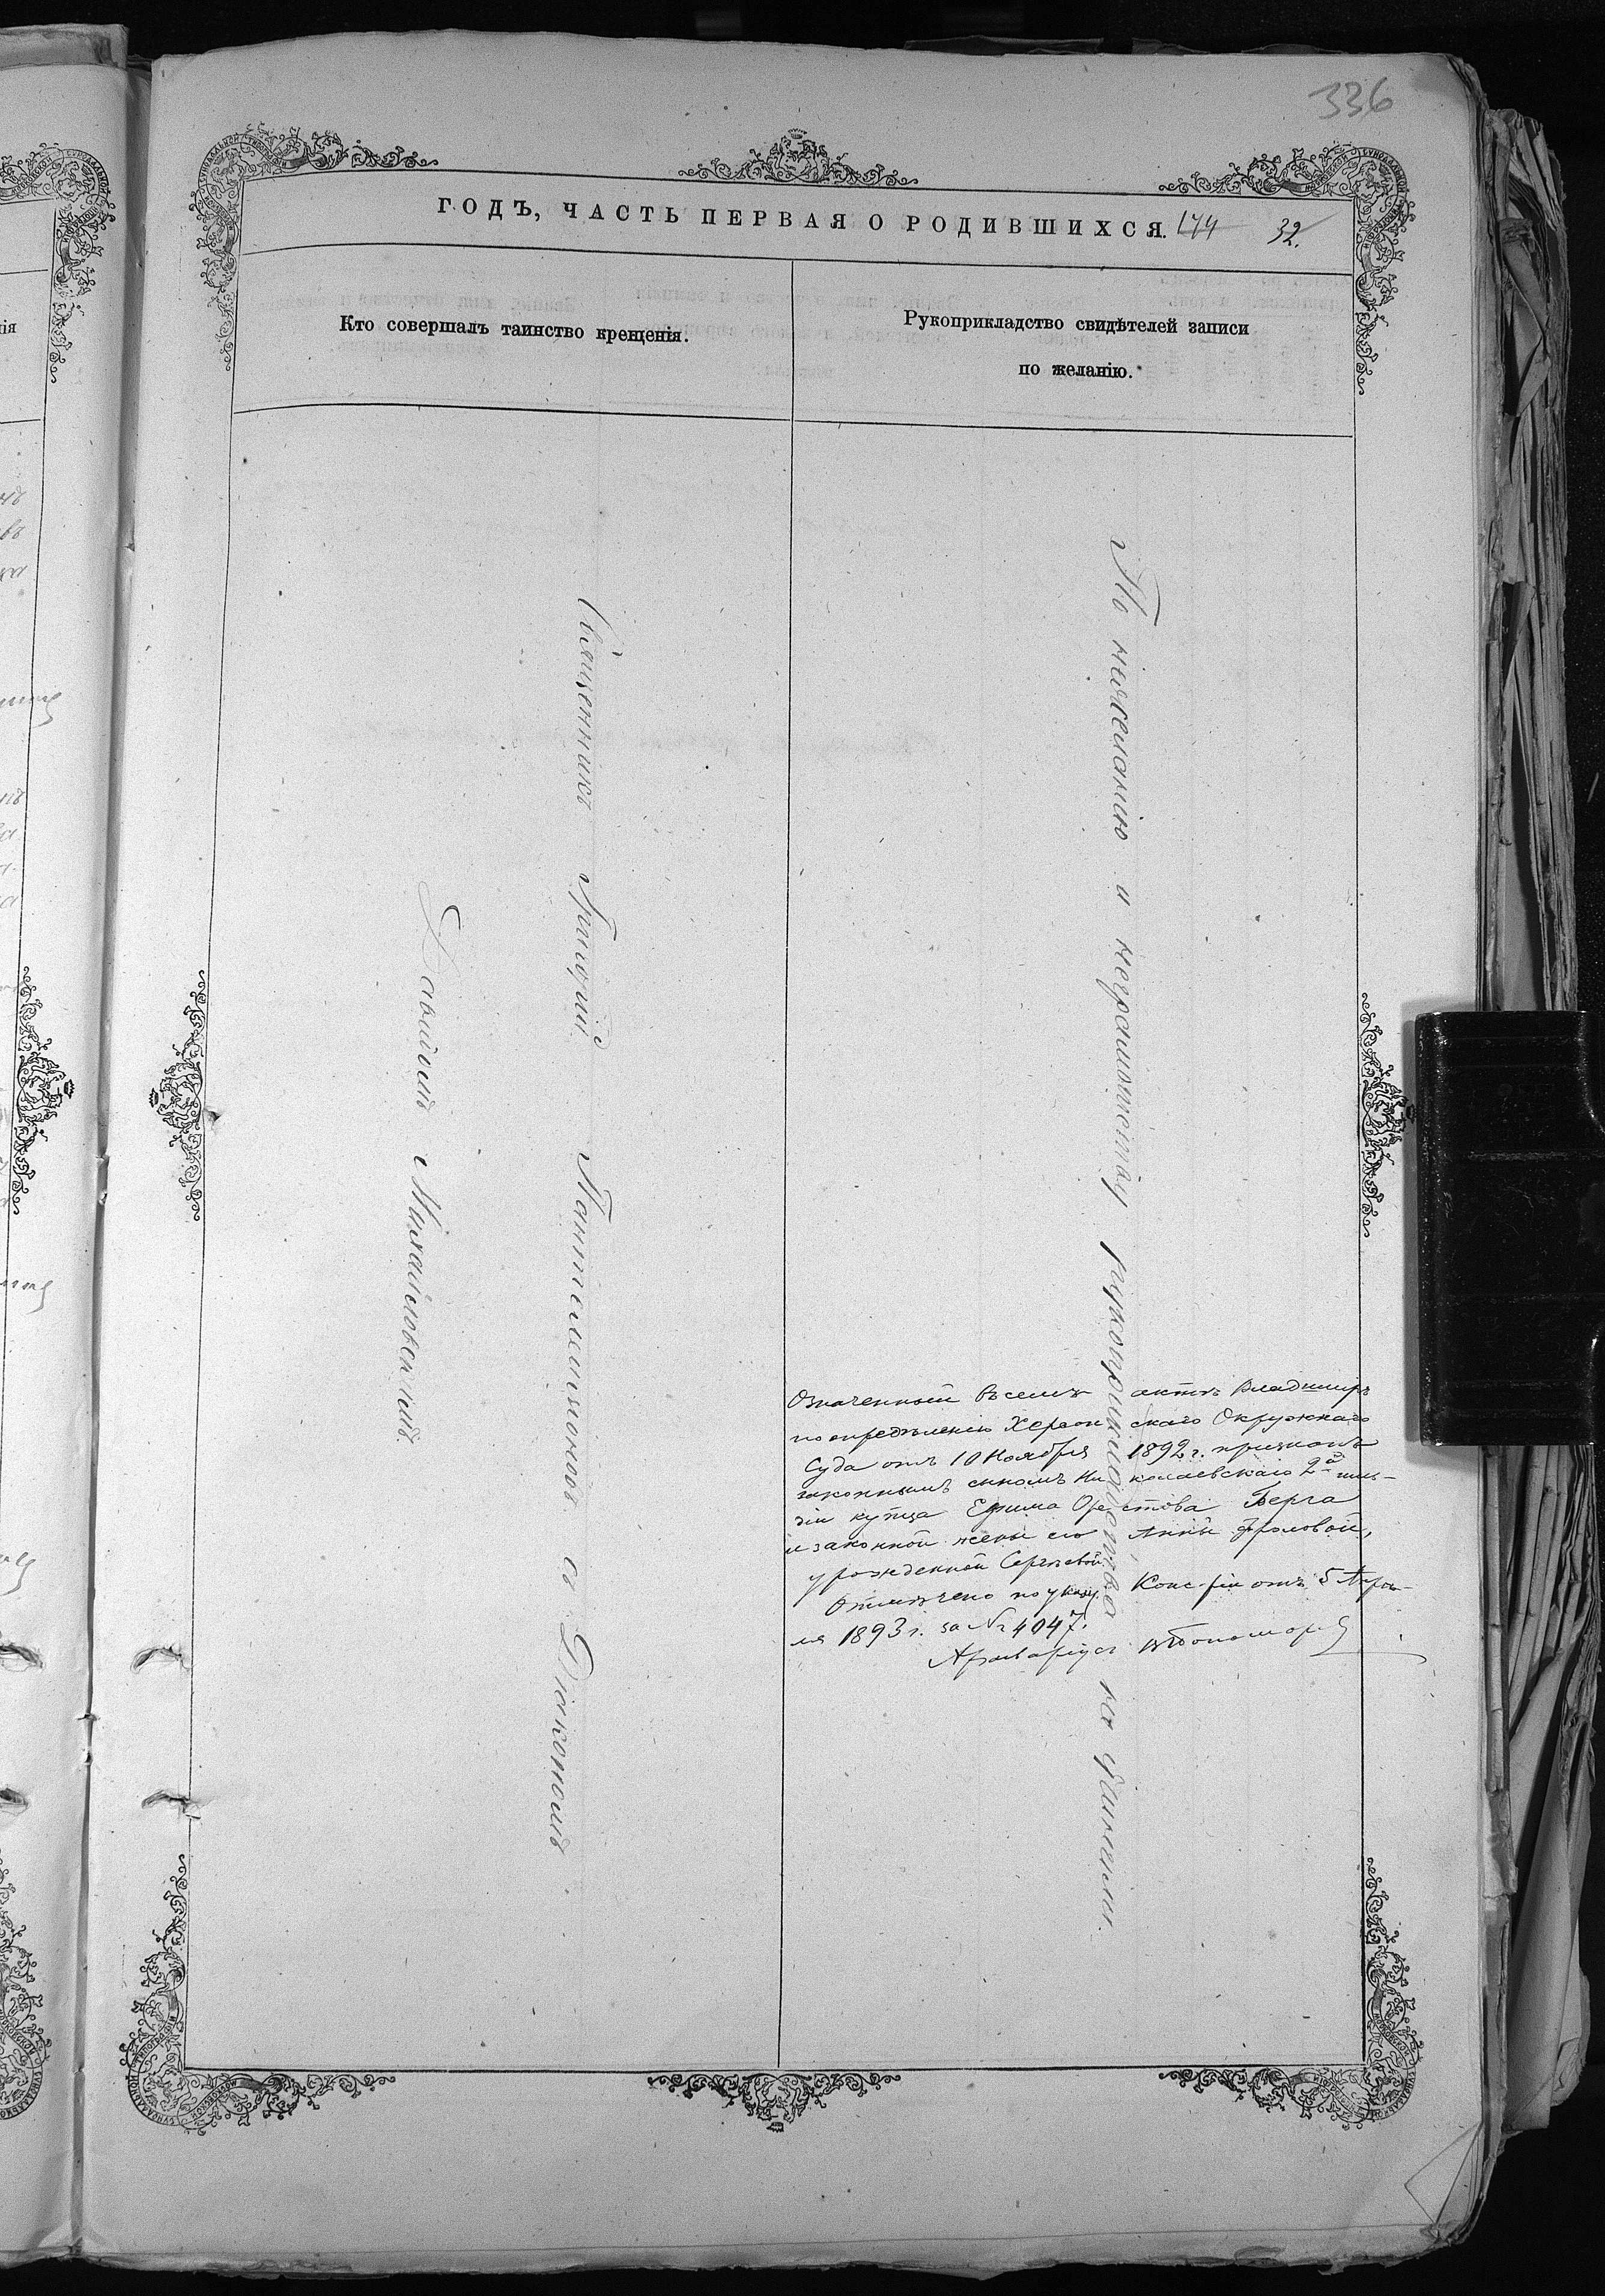 336
ГОДЪ, ЧАСТЬ ПЕРВАЯ О РОДИВШИХСЯ. 174 32.
Кто совершалъ таинство крещенія.
Рукоприкладство свидѣтелей записи
по желанію.
Священникъ Григорій Пантелимоновъ со Діакономъ
Давидомъ Михайловскимъ.
По нежеланію и неграмотству рукоприкладства не учинили.
Означенный въ семъ актѣ Владимиръ
по опредѣленію Херсонскаго Окружнаго
Суда отъ 10 Ноября 1892 г. признанъ
законнымъ сыномъ Николаевскаго 2й гиль-
діи купца Ефима Орестова Берга
и законной жены его Анны Фроловой,
урожденной Сергѣевой.
Отмѣчено по указу Конс-ріи отъ 5 Апрѣ-
ля 1893 г. за № 4047.
Архиваріусъ